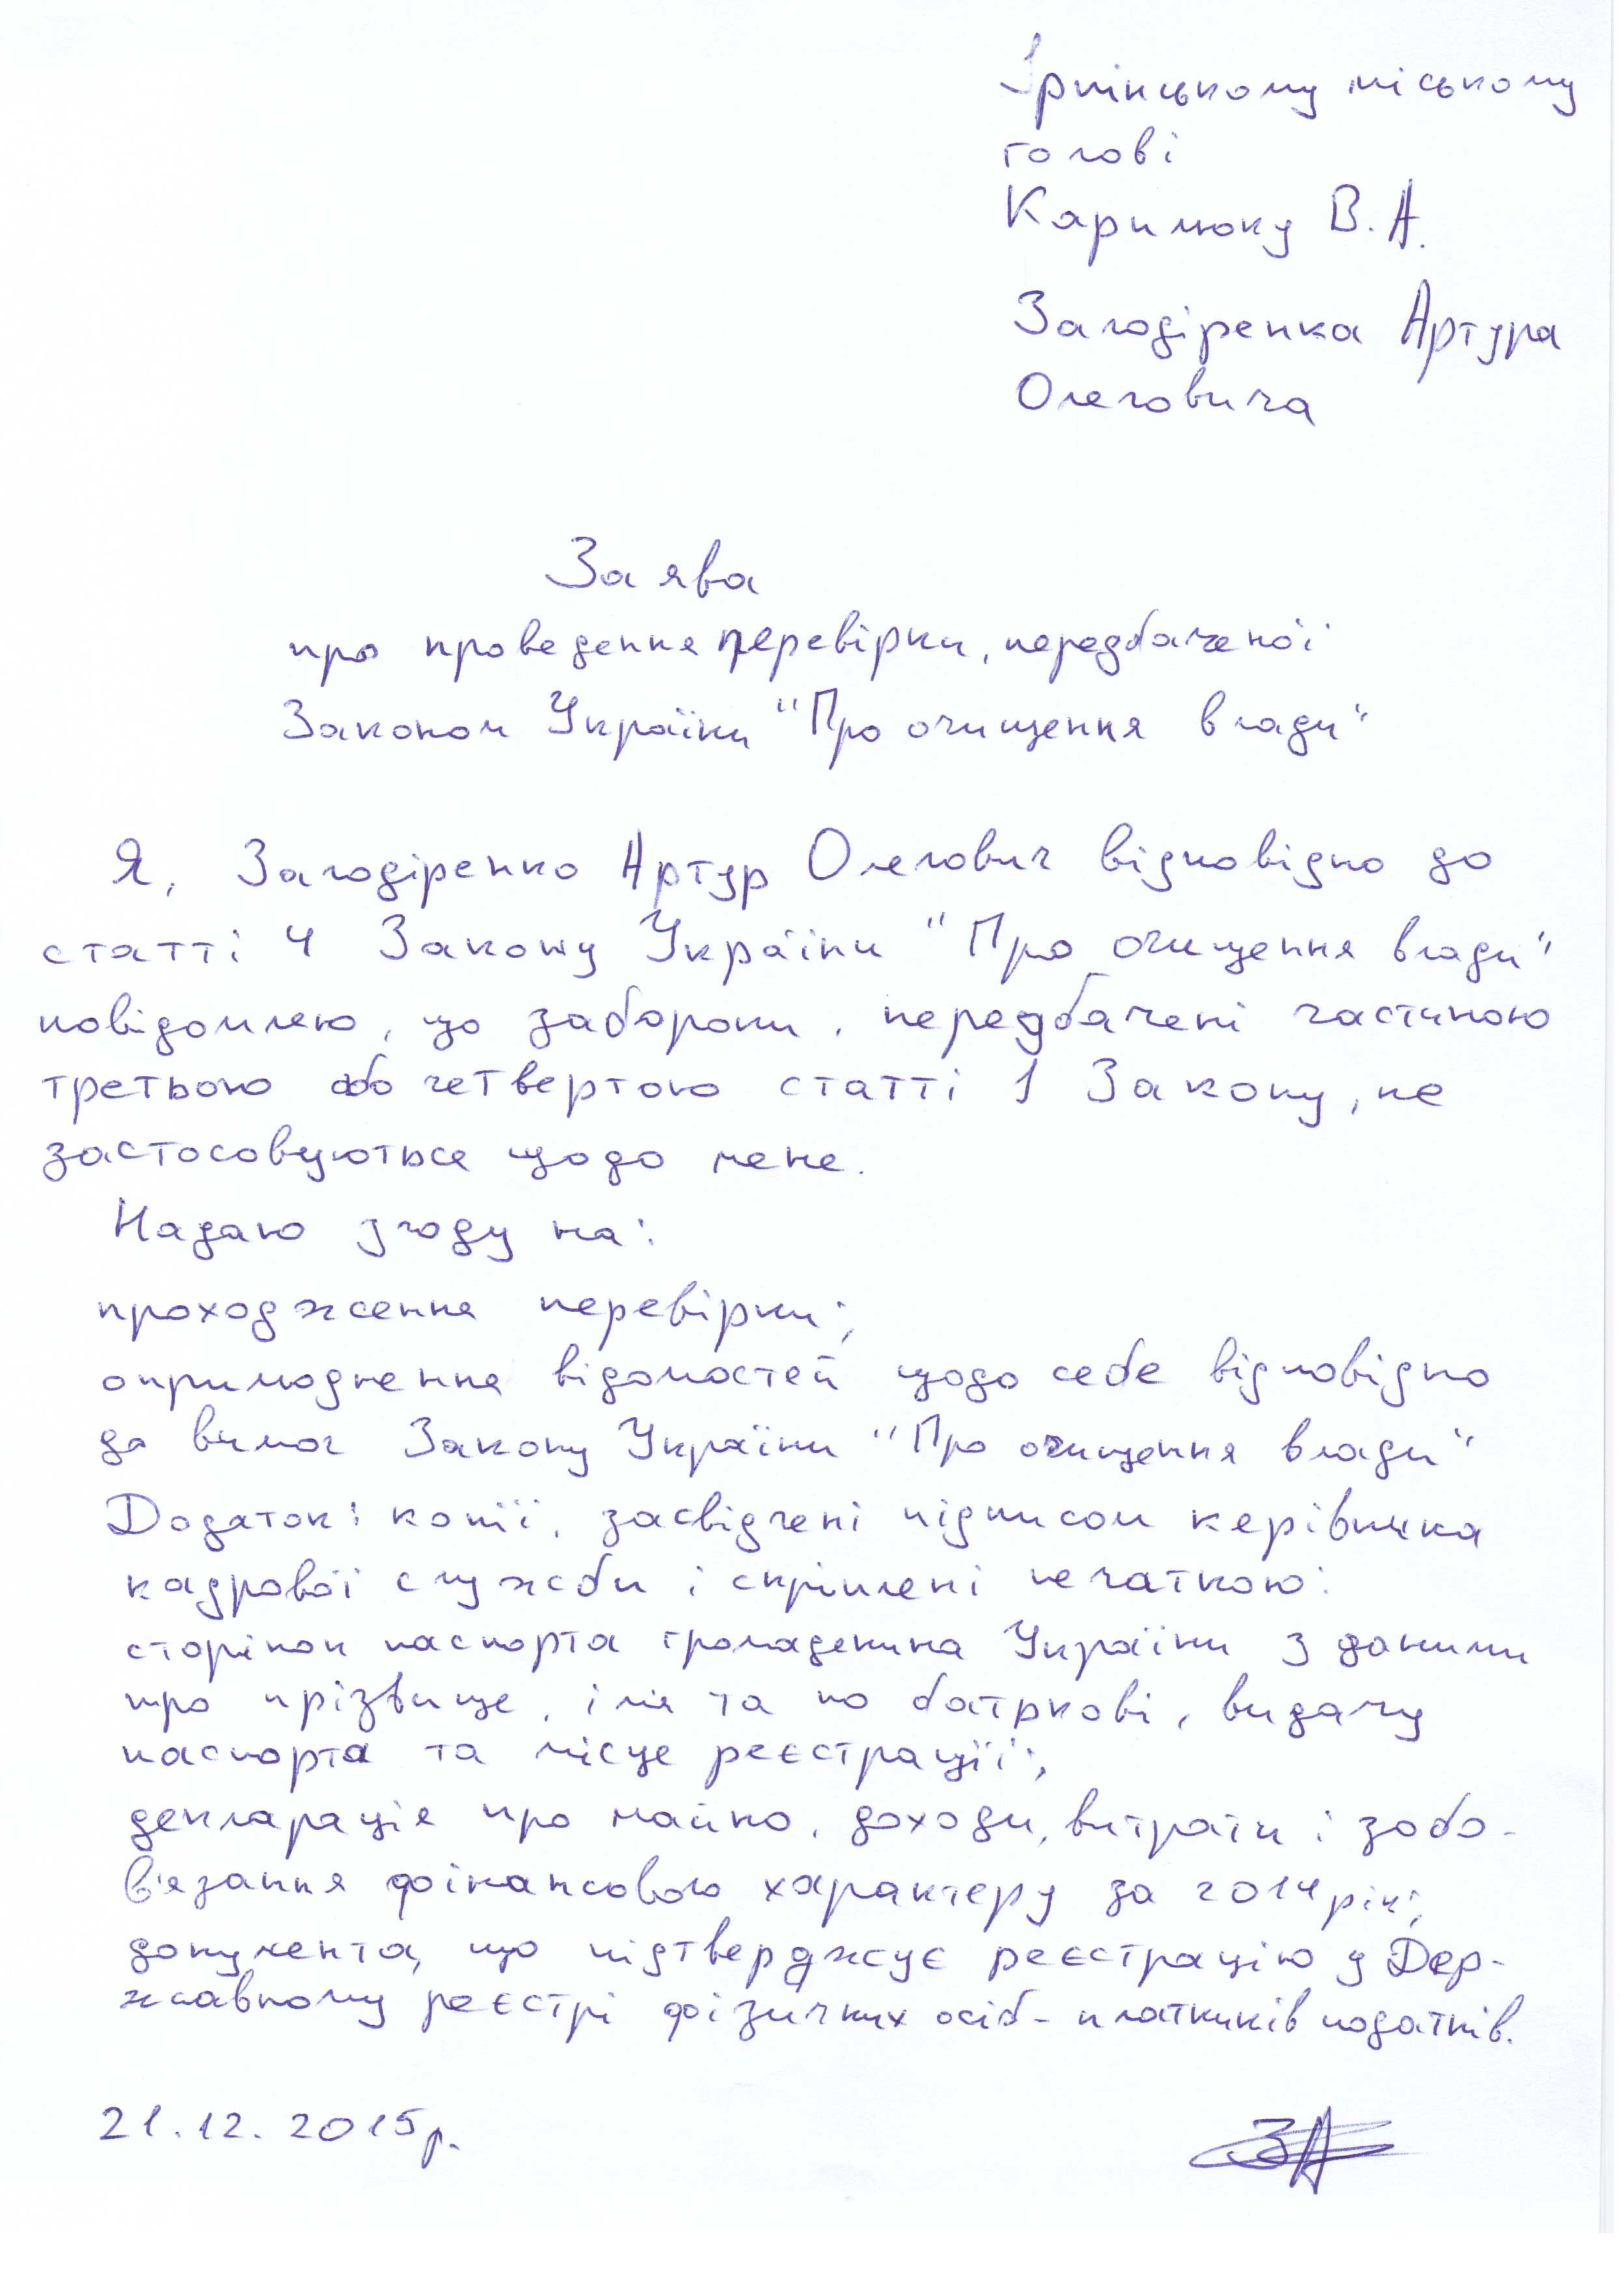 Ірпінському міському
голові
Карплюку В.А.
Загодіренка Артура
Олеговича
Заява
про проведення перевірки, передбаченої
Законом України "Про очищення влади"
Я, Загодіренко Артур Олегович відповідно до
статті 4 Закону України "Про очищення влади"
повідомляю, що заборони, передбачені частиною
третьою або четвертою статті 1 Закону, не
застосовуються щодо мене.
Надаю згоду на:
проходження перевірки;
оприлюднення відомостей щодо себе відповідно
до вимог Закону України "Про очищення влади"
Додаток: копії, засвідчені підписом керівника
кадрової служби і скріплені печаткою:
сторінок паспорта громадянина України з даними
про прізвище, ім'я та по батькові, видачу
паспорта та місце реєстрації;
декларація про майно, доходи, витрати і зобо-
в'язання фінансового характеру за 2014 рік;
документа, що підтверджує реєстрацію у Дер-
жавному реєстрі фізичних осіб - платників податків.
21.12.2015р.
ЗА